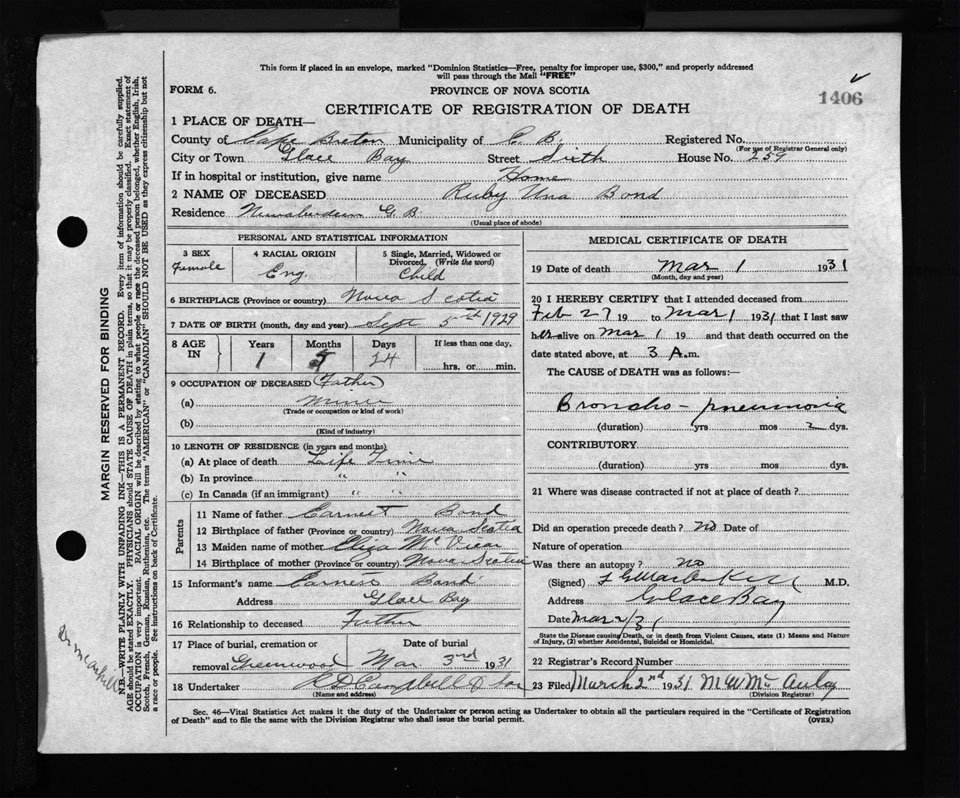 This form if placed in an envelope, marked "Dominion Statistics—Free, penalty for improper use, $300," and properly addressed
will pass through the Mail "FREE"
FORM 6.
PROVINCE OF NOVA SCOTIA
1406
CERTIFICATE OF REGISTRATION OF DEATH
1 PLACE OF DEATH—
County of Cape Breton Municipality of C. B. Registered No.
(For use of Registrar General only)
City or Town Glace Bay Street Sixth House No. 259
If in hospital or institution, give name Home
2 NAME OF DECEASED Ruby Una Bond
Residence Newaberdeen G. B.
(Usual place of abode)
PERSONAL AND STATISTICAL INFORMATION
3 SEX Female
4 RACIAL ORIGIN Eng.
5 Single, Married, Widowed or
Divorced. (Write the word)
Child
6 BIRTHPLACE (Province or country) Nova Scotia
7 DATE OF BIRTH (month, day and year) Sept 5th 1929
8 AGE IN
Years Months Days If less than one day,
1 5 24 hrs. or min.
9 OCCUPATION OF DECEASED Father
(a) Miner
(Trade or occupation or kind of work)
(b)
(Kind of industry)
10 LENGTH OF RESIDENCE (in years and months)
(a) At place of death Life Time
(b) In province " "
(c) In Canada (if an immigrant) " "
Parents
11 Name of father Earnest Bond
12 Birthplace of father (Province or country) Nova Scotia
13 Maiden name of mother Eliza McVicar
14 Birthplace of mother (Province or country) Nova Scotia
15 Informant's name Earness Bond
Address Glace Bay
16 Relationship to deceased Father
17 Place of burial, cremation or Date of burial
removal Greenwood Mar. 3rd 1931
18 Undertaker R D Campbell & Son
(Name and address)
MEDICAL CERTIFICATE OF DEATH
19 Date of death Mar 1 1931
(Month, day and year)
20 I HEREBY CERTIFY that I attended deceased from
Feb 27 19 to Mar 1 1931 that I last saw
her alive on Mar 1 19 and that death occurred on the
date stated above, at 3 A.m.
The CAUSE of DEATH was as follows:—
Broncho-pneumonia
(duration) yrs mos 2 dys.
CONTRIBUTORY
(duration) yrs. mos. dys.
21 Where was disease contracted if not at place of death?
Did an operation precede death? no Date of
Nature of operation
Was there an autopsy? no
(Signed) M.D.
Address Glace Bay
Date Mar 2/31
State the Disease causing Death, or in death from Violent Causes, state (1) Means and Nature
of Injury, (2) whether Accidental, Suicidal or Homicidal.
22 Registrar's Record Number
23 Filed March 2nd 1931 M W McAulay
(Division Registrar)
Sec. 46—Vital Statistics Act makes it the duty of the Undertaker or person acting as Undertaker to obtain all the particulars required in the "Certificate of Registration
of Death" and to file the same with the Division Registrar who shall issue the burial permit.
(OVER)
MARGIN RESERVED FOR BINDING
N.B.—WRITE PLAINLY WITH UNFADING INK—THIS IS A PERMANENT RECORD. Every item of information should be carefully supplied.
AGE should be stated EXACTLY. PHYSICIANS should STATE CAUSE OF DEATH in plain terms, so that it may be properly classified. Exact statement of
OCCUPATION is very important. RACIAL ORIGIN will be described by stating to what people or race the deceased person belonged, whether English, Irish,
Scotch, French, German, Russian, Ruthenian, etc. The terms "AMERICAN" or "CANADIAN" SHOULD NOT BE USED as they express citizenship but not
a race or people. See instructions on back of Certificate.